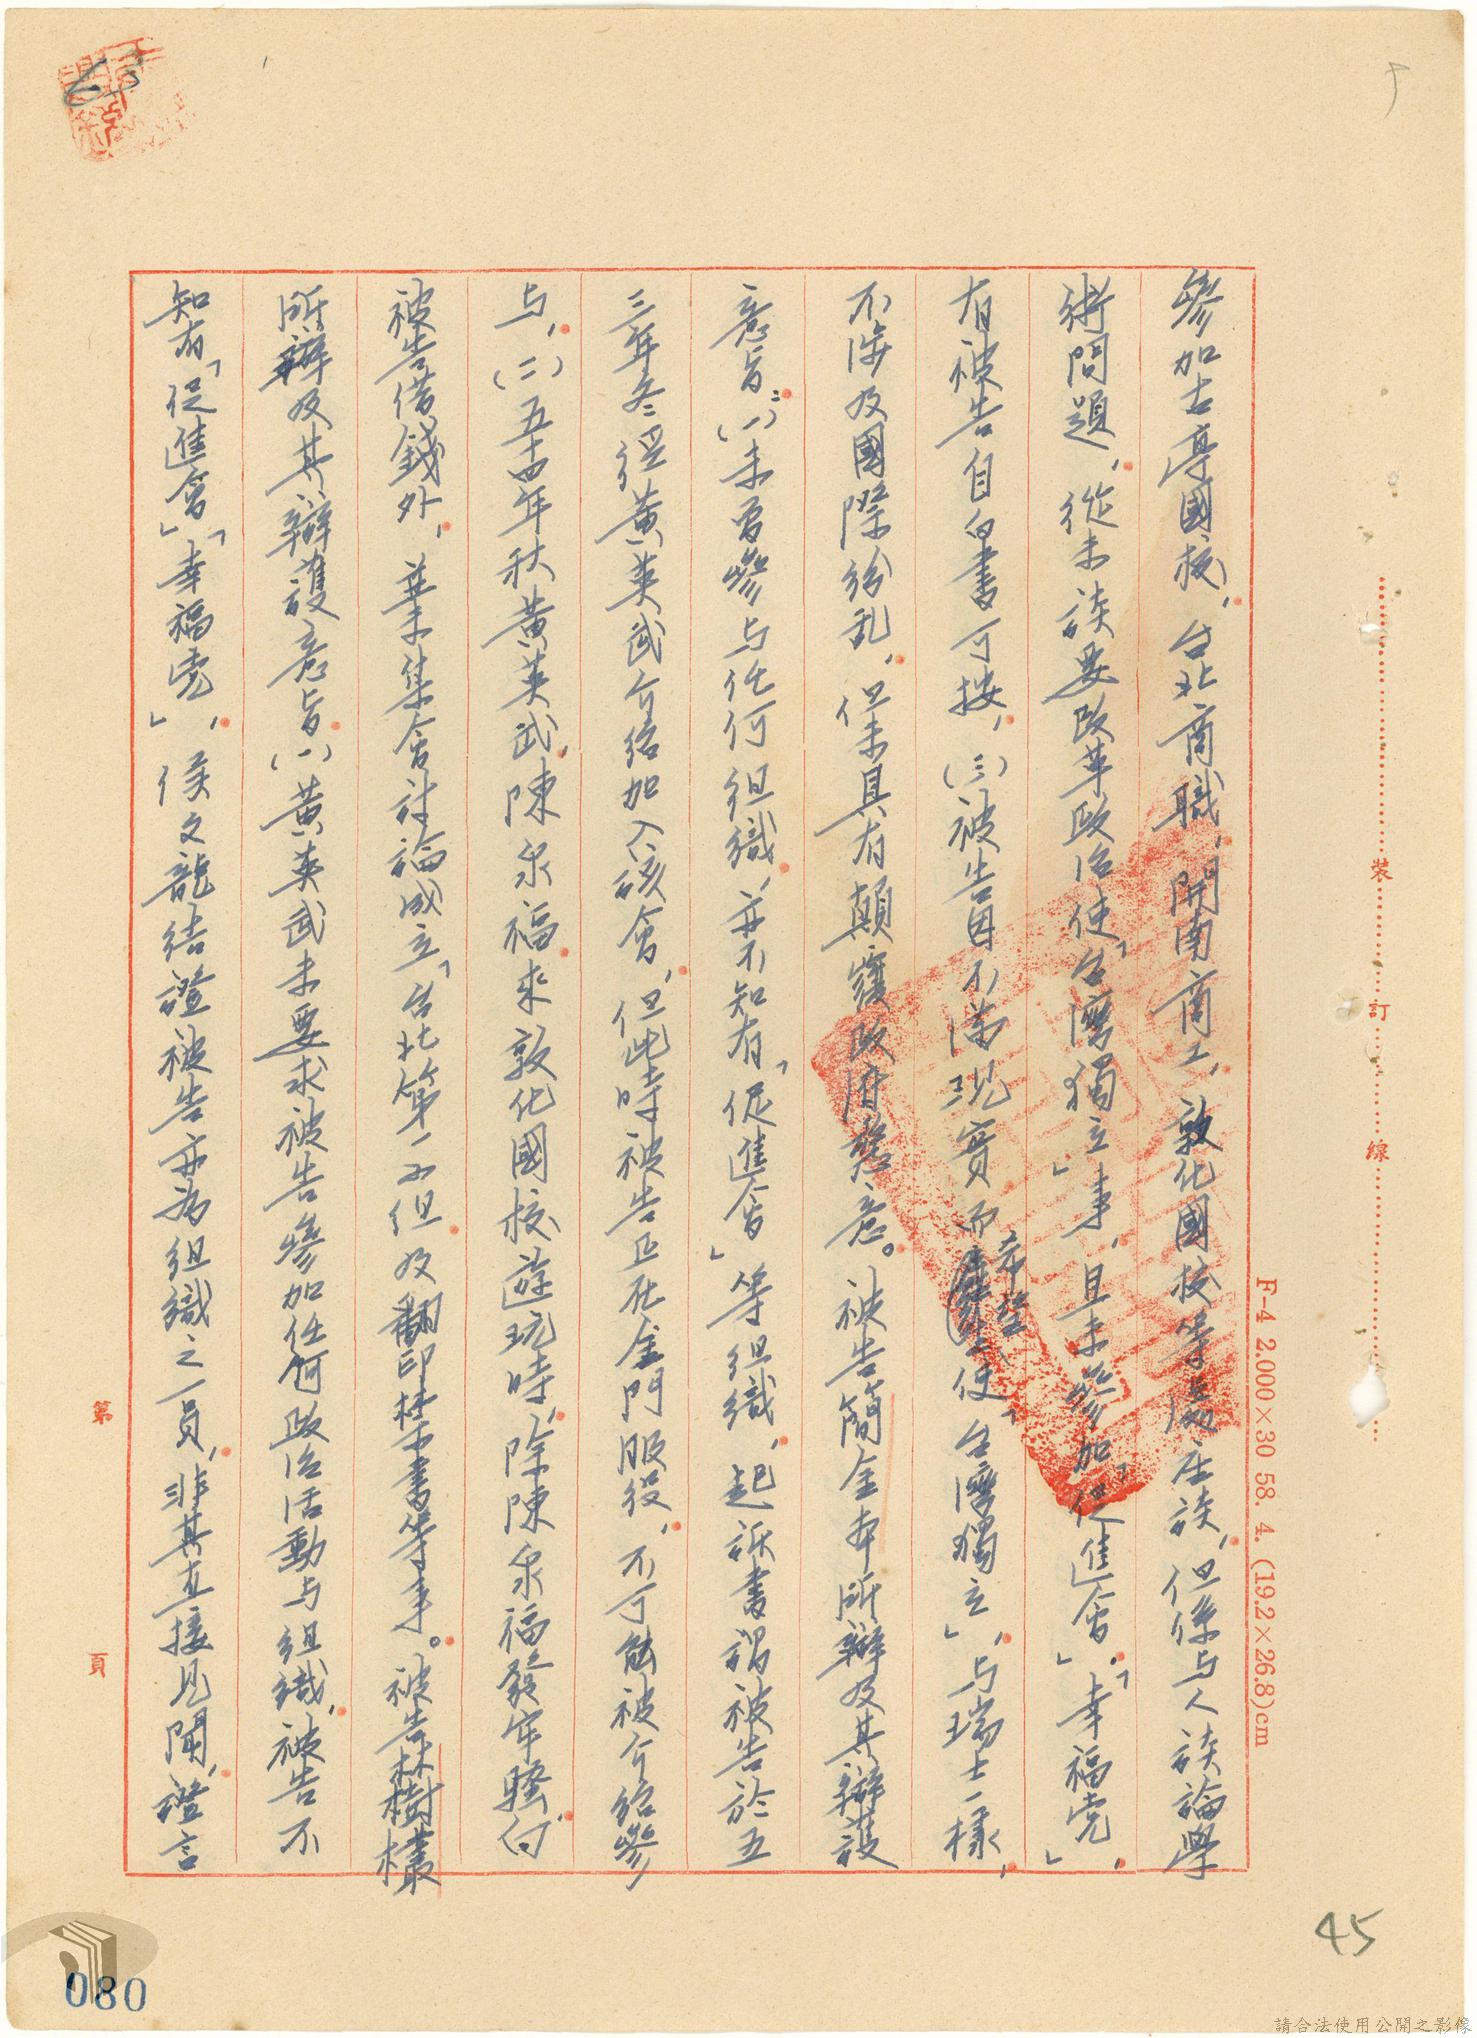 參加古亭國校，台北商職，開南商工，敦化國校等處座談，但係与人談論學
術問題，從未談要改革政治使「台灣獨立」事，且未參加「促進會」，「幸福党」，
有被告自白書可按，（三）被告因不滿現實而希望使「台灣獨立」，与瑞士一樣，
不涉及國際紛乱，但未具有顛覆政府意。被告簡金本所辯及其辯護
意旨：（一）未曾參与任何組織，並不知有「促進會」等組織，起訴書謂被告於五
三年冬經黃英武介紹加入該會，但此時被告正在金門服役，不可能被介紹參
与，（二）五十四年秋黃英武，陳泉福來敦化國校遊玩時，除陳泉福發牢騷，向
被告借錢外，並未集會討論成立「台北第一小組及翻印禁書等事。被告林樹欉
所辯及其辯護意旨（一）黃英武未要求被告參加任何政治活動与組織，被告不
知有「促進會」「幸福党」，侯文龍結證被告亦為組織之一員，非其直接見聞，證言
裝
訂
線
F-4 2.000×30 58. 4. (19.2×26.8)cm
第
頁
45
080
請合法使用公開之影像